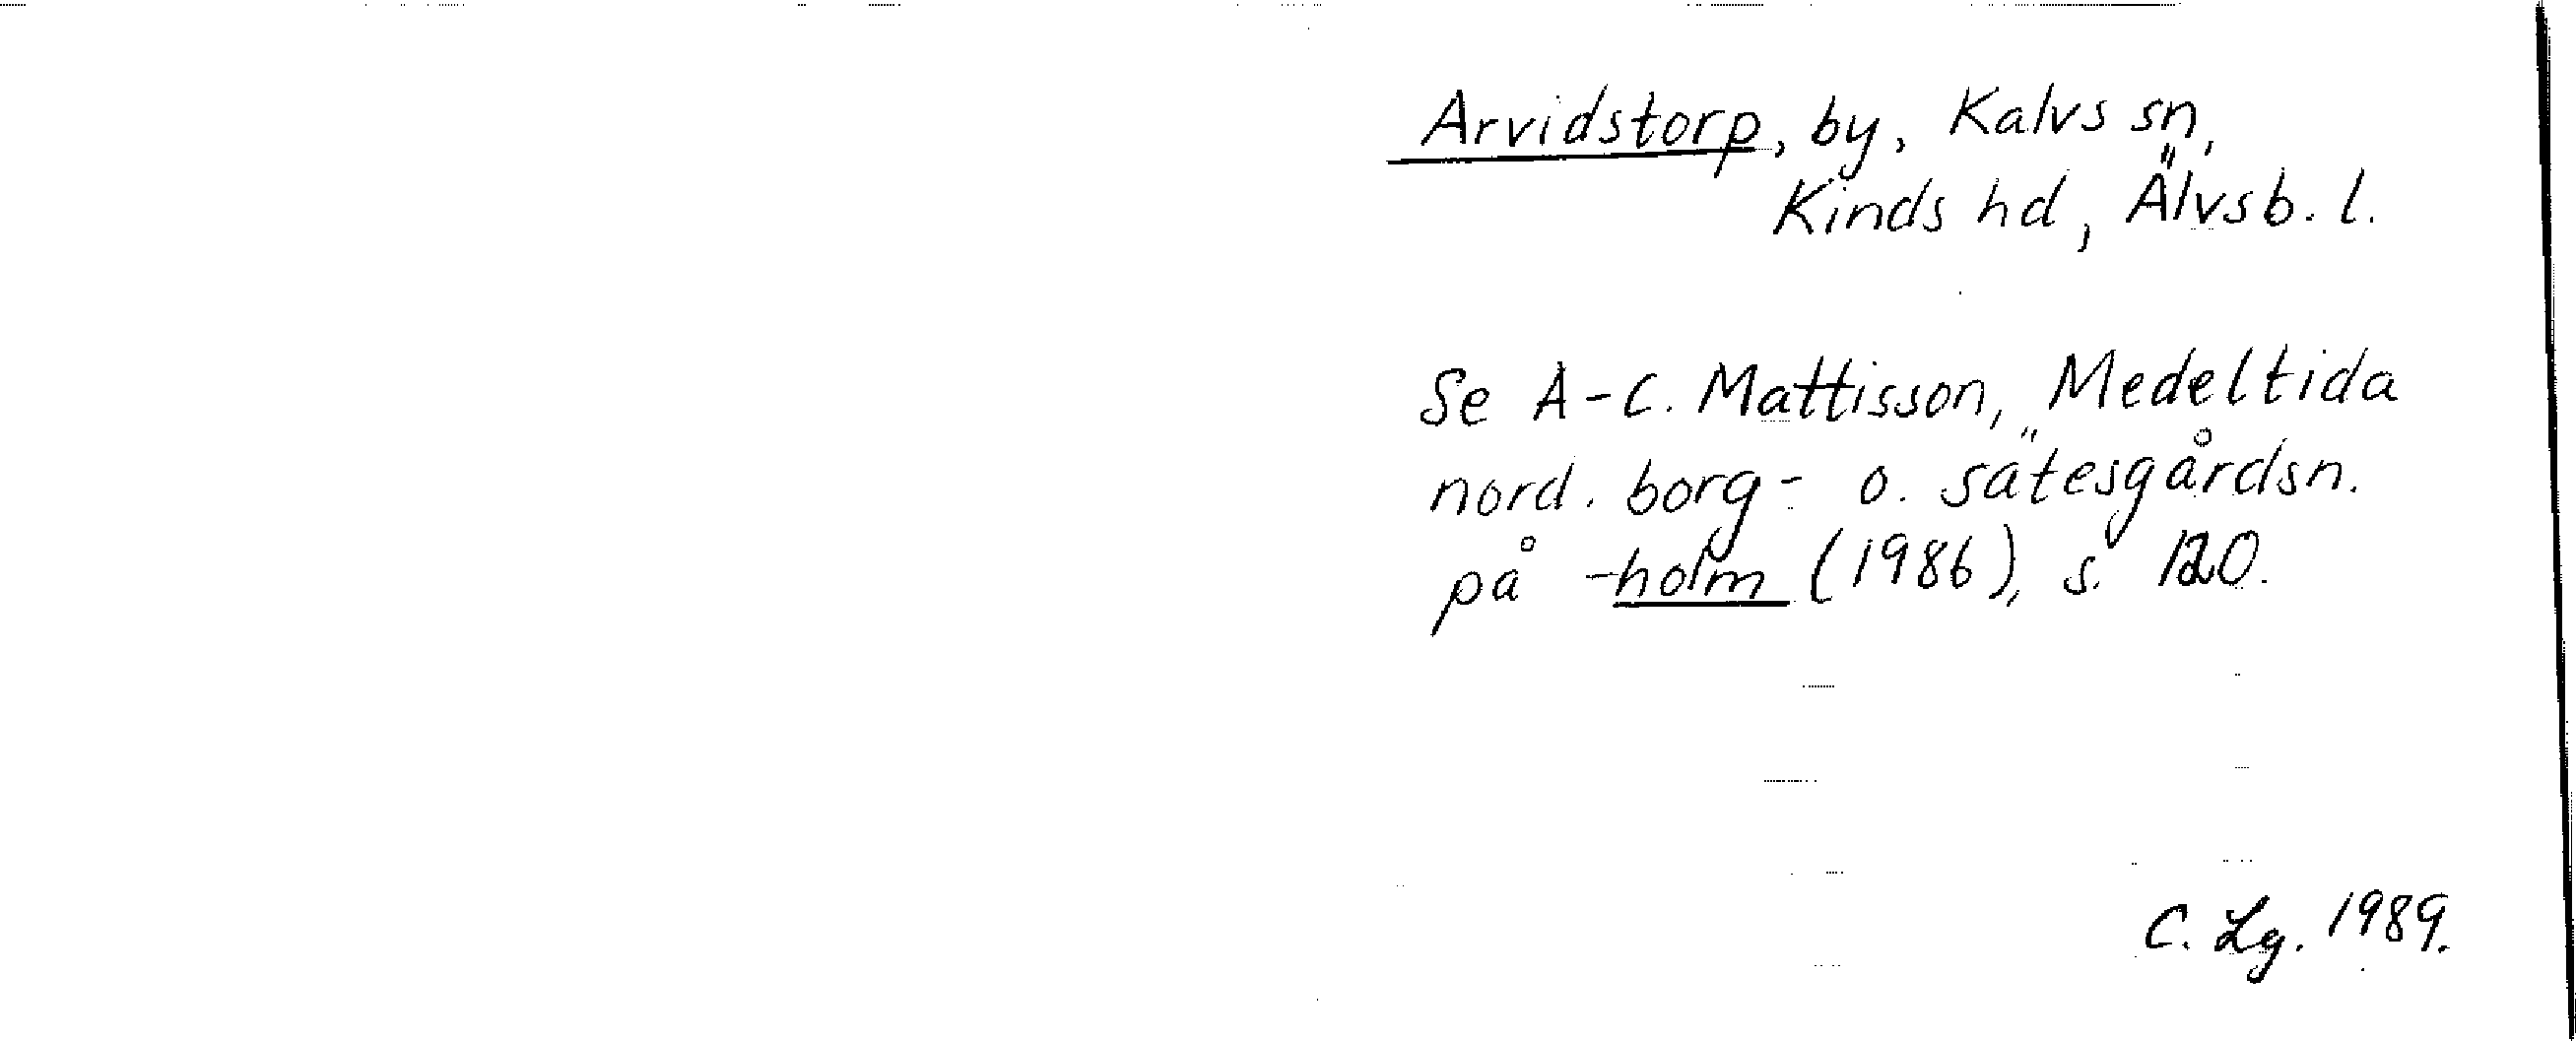 Arvidstorp, by, Kalvs sn,
Kinds hd, Älvsb. l.
Se A-C. Mattisson, Medeltida
nord. borg- o. sätesgårdsn.
på -holm (1986), s. 120.
C. Lg. 1989.